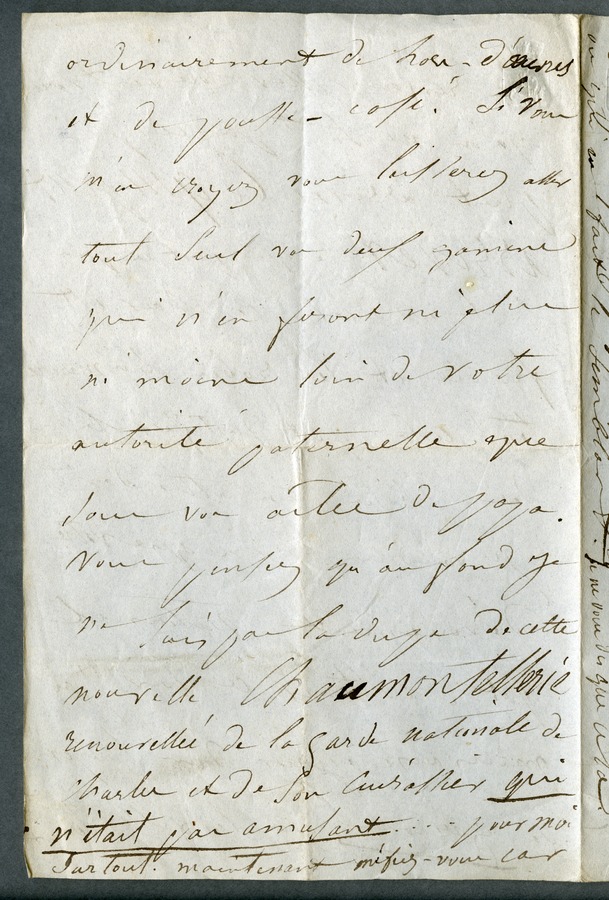 ordinairement de hors-d'œuvres
et de pousse-café. Si vous
m'en croyez vous laisserez aller
tout seul vos deux gamins
qui n'en feront ni plus
ni moins loin de votre
autorité paternelle que
sous vos ailes de papa.
Vous pensez qu'au fond je
ne suis pas la dupe de cette
nouvelle Chaumontellerie
renouvellée de la garde nationale de
Charles et de son Cuirassier qui
n'était pas amusant .... pour moi
surtout. maintenant méfiez-vous car
faute
semblant. je ne vous dis que cela